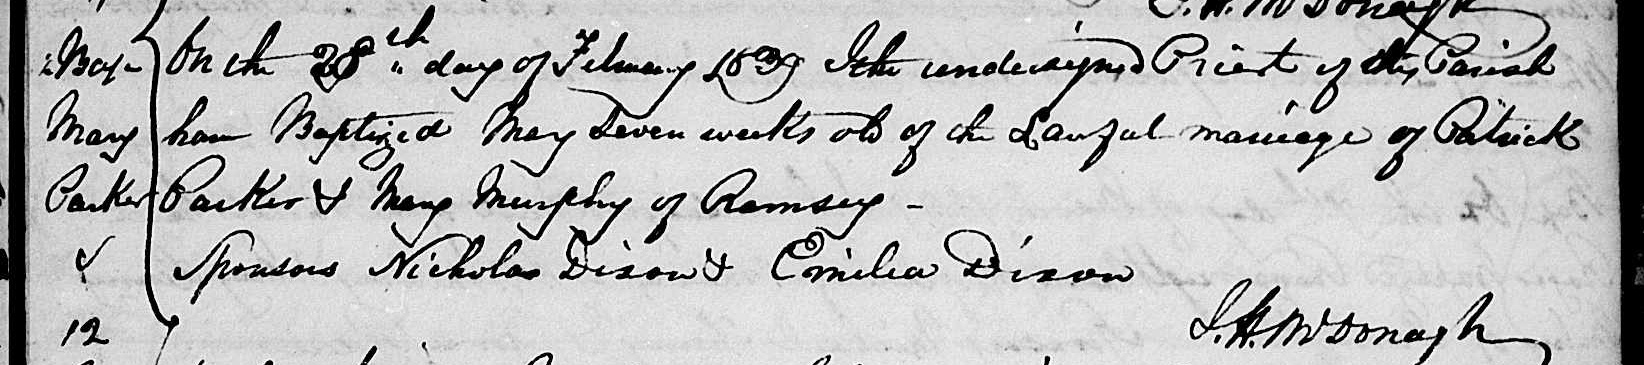 J. H. McDonagh
Bap On the 28th day of February 1839 I the undersigned Priest of this Parish
Mary have Baptized Mary Seven weeks old of the Lawful marriage of Patrick
Parker Parker & Mary Murphy of Ramsey -
Sponsors Nicholas Dixon & Emilea Dixon
12 J. H. McDonagh